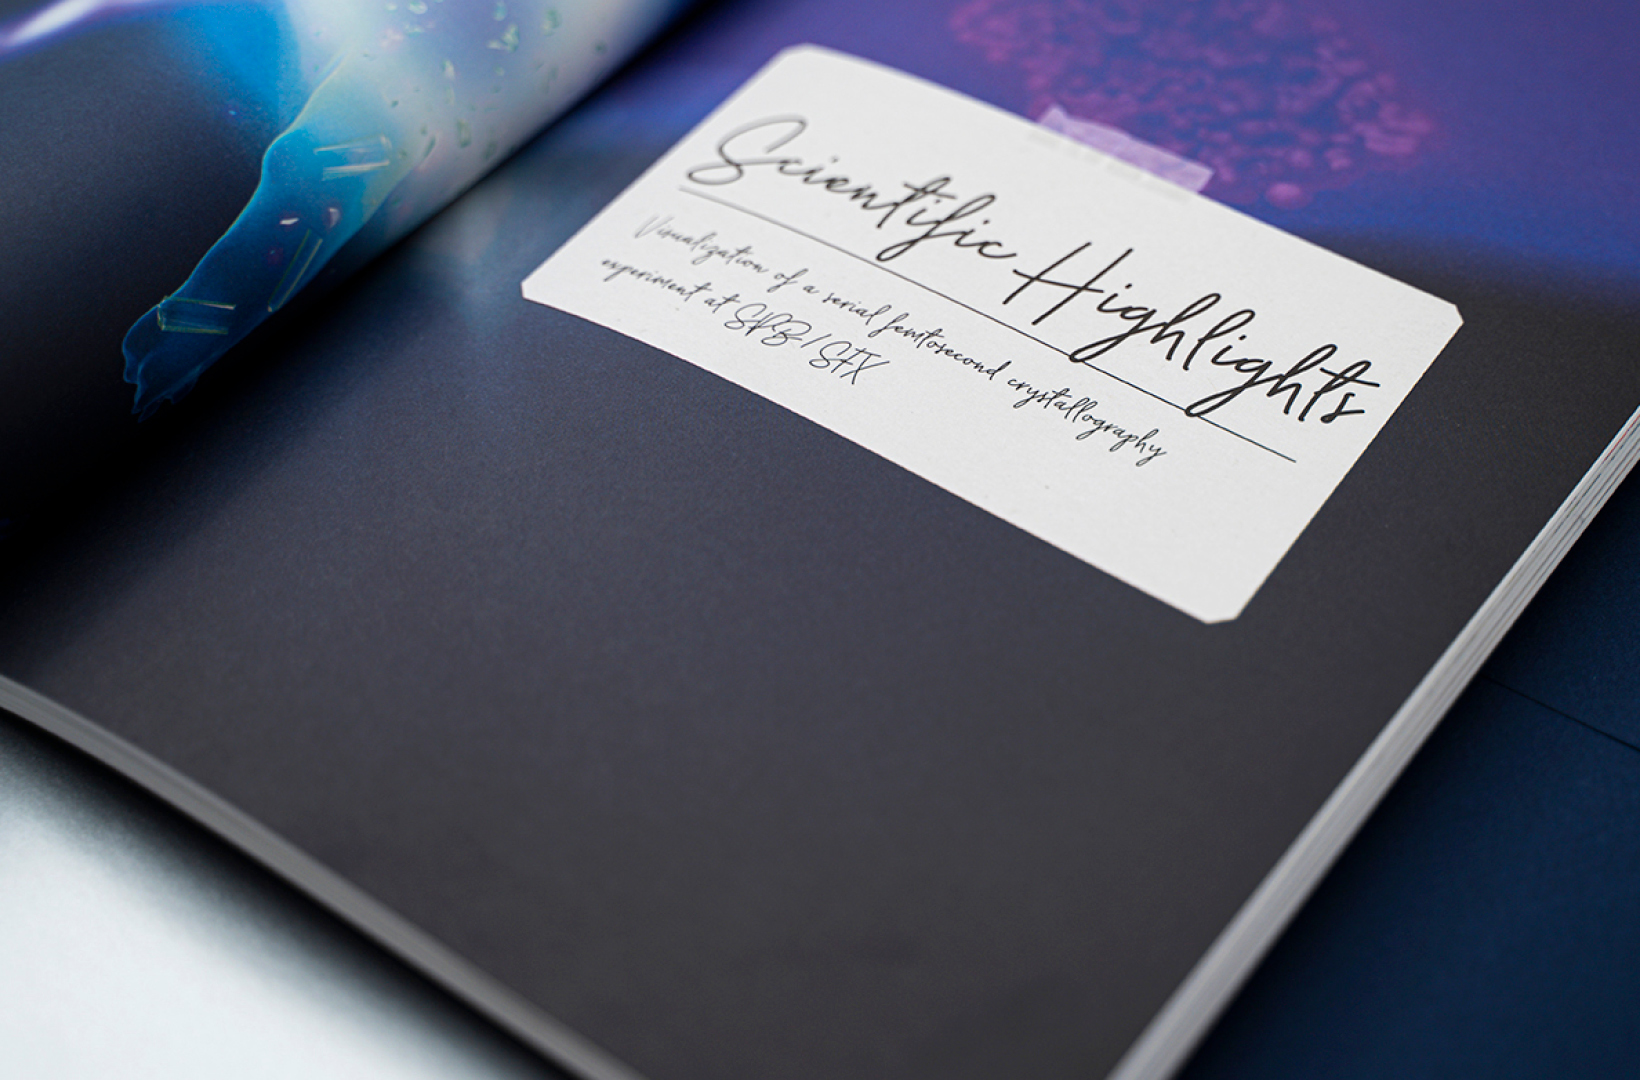 Scientific Highlights
Visualization of a serial femtosecond crystallography
experiment at SPB/SFX